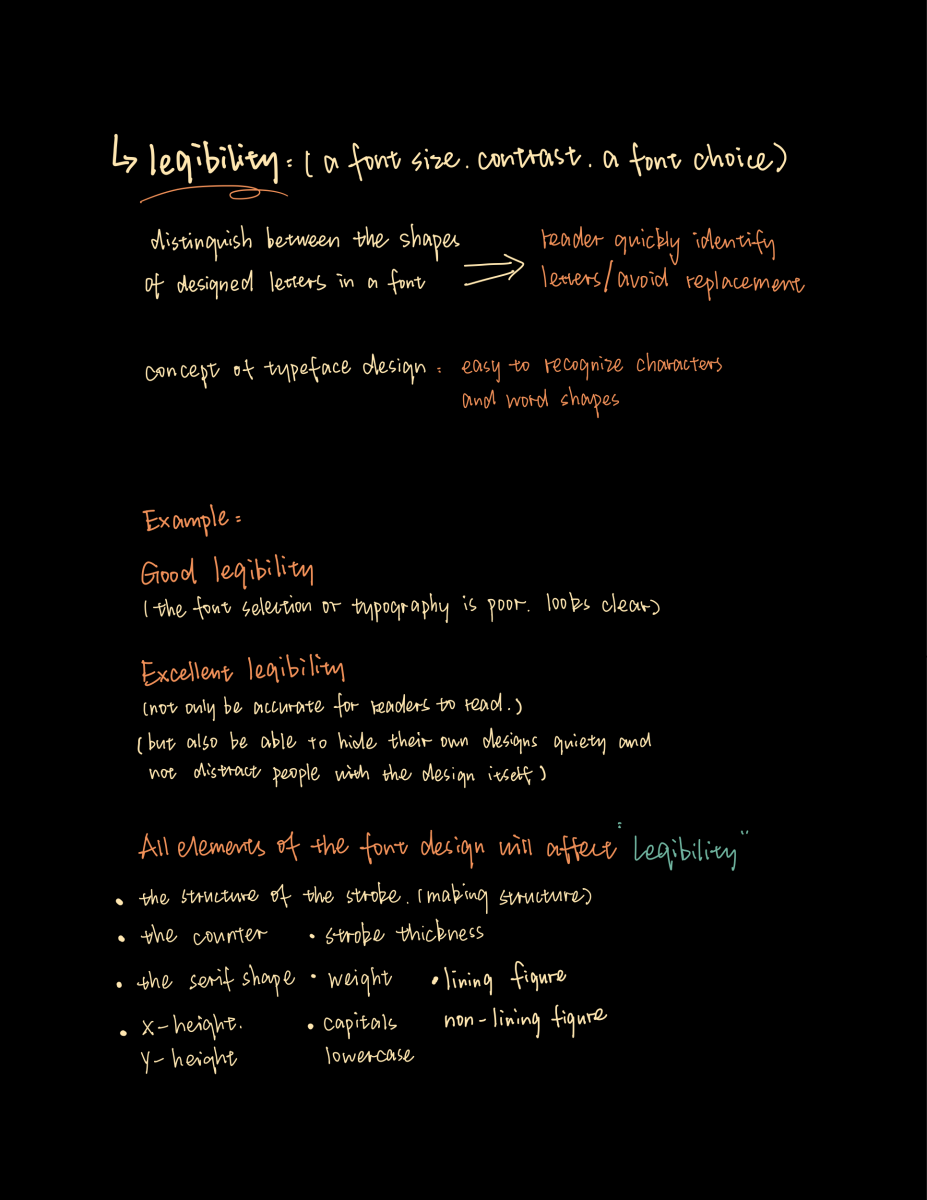 ↳ legibility: (a font size. contrast. a font choice)
distinguish between the shapes
of designed letters in a font
⇒ reader quickly identify
letters/avoid replacement
concept of typeface design: easy to recognize characters
and word shapes
Example:
Good legibility
(the font selection or typography is poor. looks clear)
Excellent legibility
(not only be accurate for readers to read.)
(but also be able to hide their own designs quiety and
not distract people with the design itself)
All elements of the font design will affect "legibility"
• the structure of the stroke. (making structure)
• the counter • stroke thickness
• the serif shape • weight • lining figure
non-lining figure
• x-height. • capitals
y-height lowercase